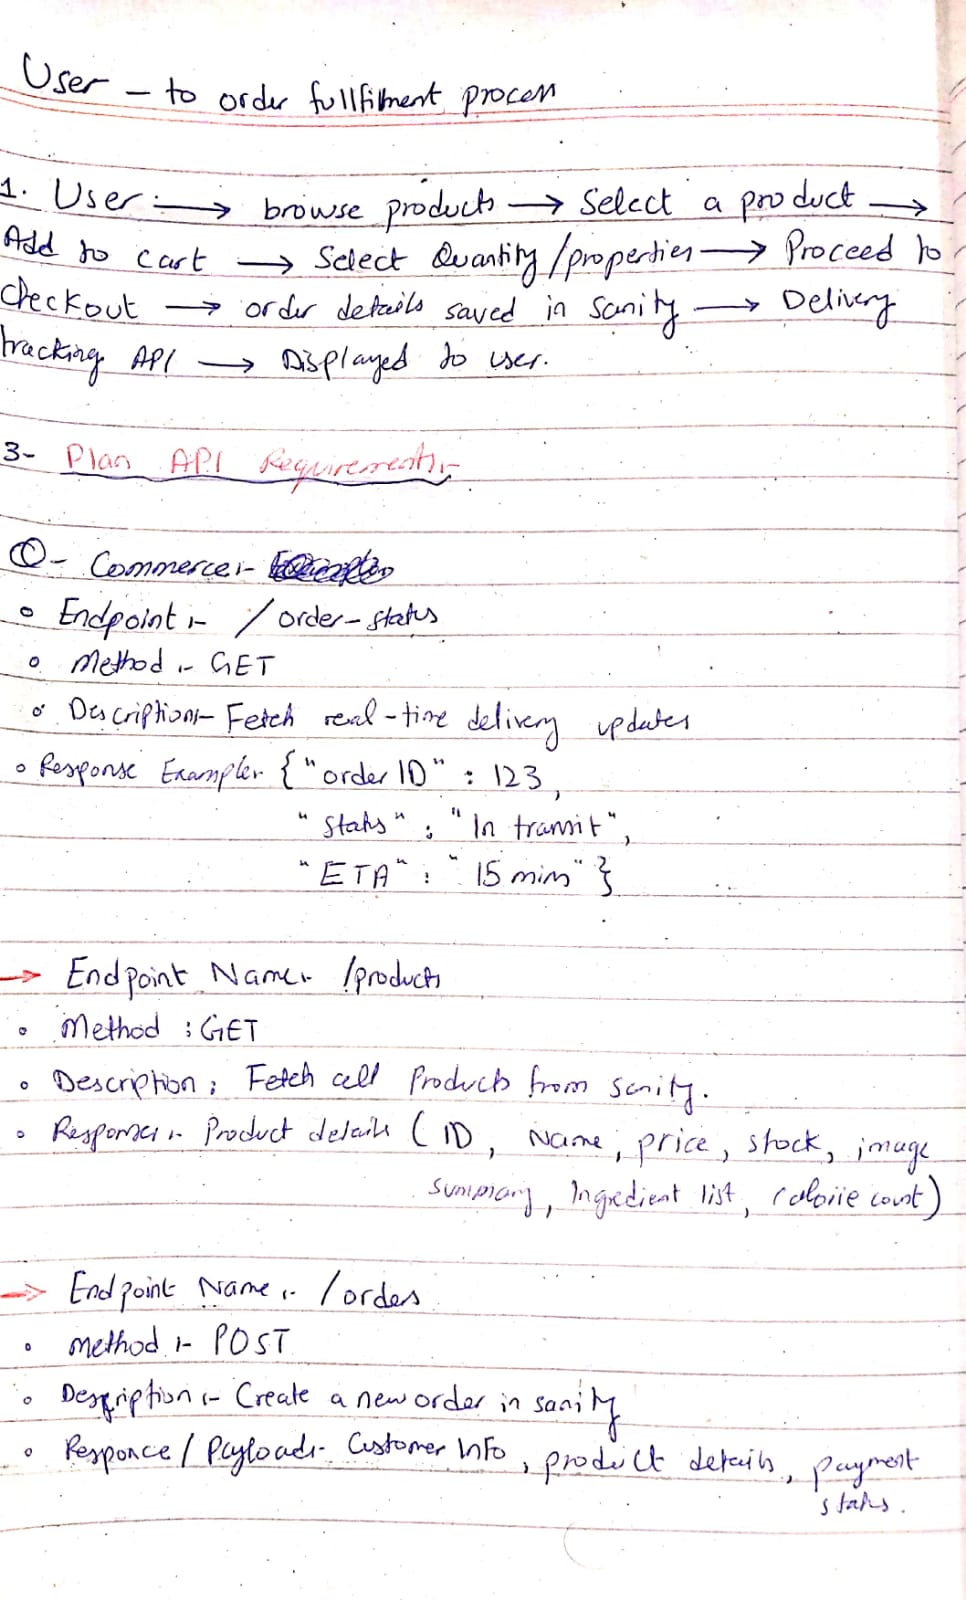 User – to order fullfilment process
1. User :⟶ browse products ⟶ Select a product ⟶
Add to cart ⟶ Select Quantity/properties ⟶ Proceed to
checkout ⟶ order details saved in sanity ⟶ Delivery
tracking API ⟶ Displayed to user.
3- Plan API Requirements:-
①- Commerce:-
o Endpoint :- /order-status
o Method :- GET
o Description:- Fetch real-time delivery updates
o Response Example:- {"order ID" : 123,
"Status" : "In transit",
"ETA" : "15 mins" }
→ Endpoint Name:- /products
o Method : GET
o Description : Fetch all Products from sanity.
o Response :- Product details ( ID, Name, price, stock, image
summary, Ingredient list, calorie count)
→ Endpoint Name :- /orders
• Method :- POST
o Description :- Create a new order in sanity
o Responce / Payload:- Customer Info, product details, payment
status.